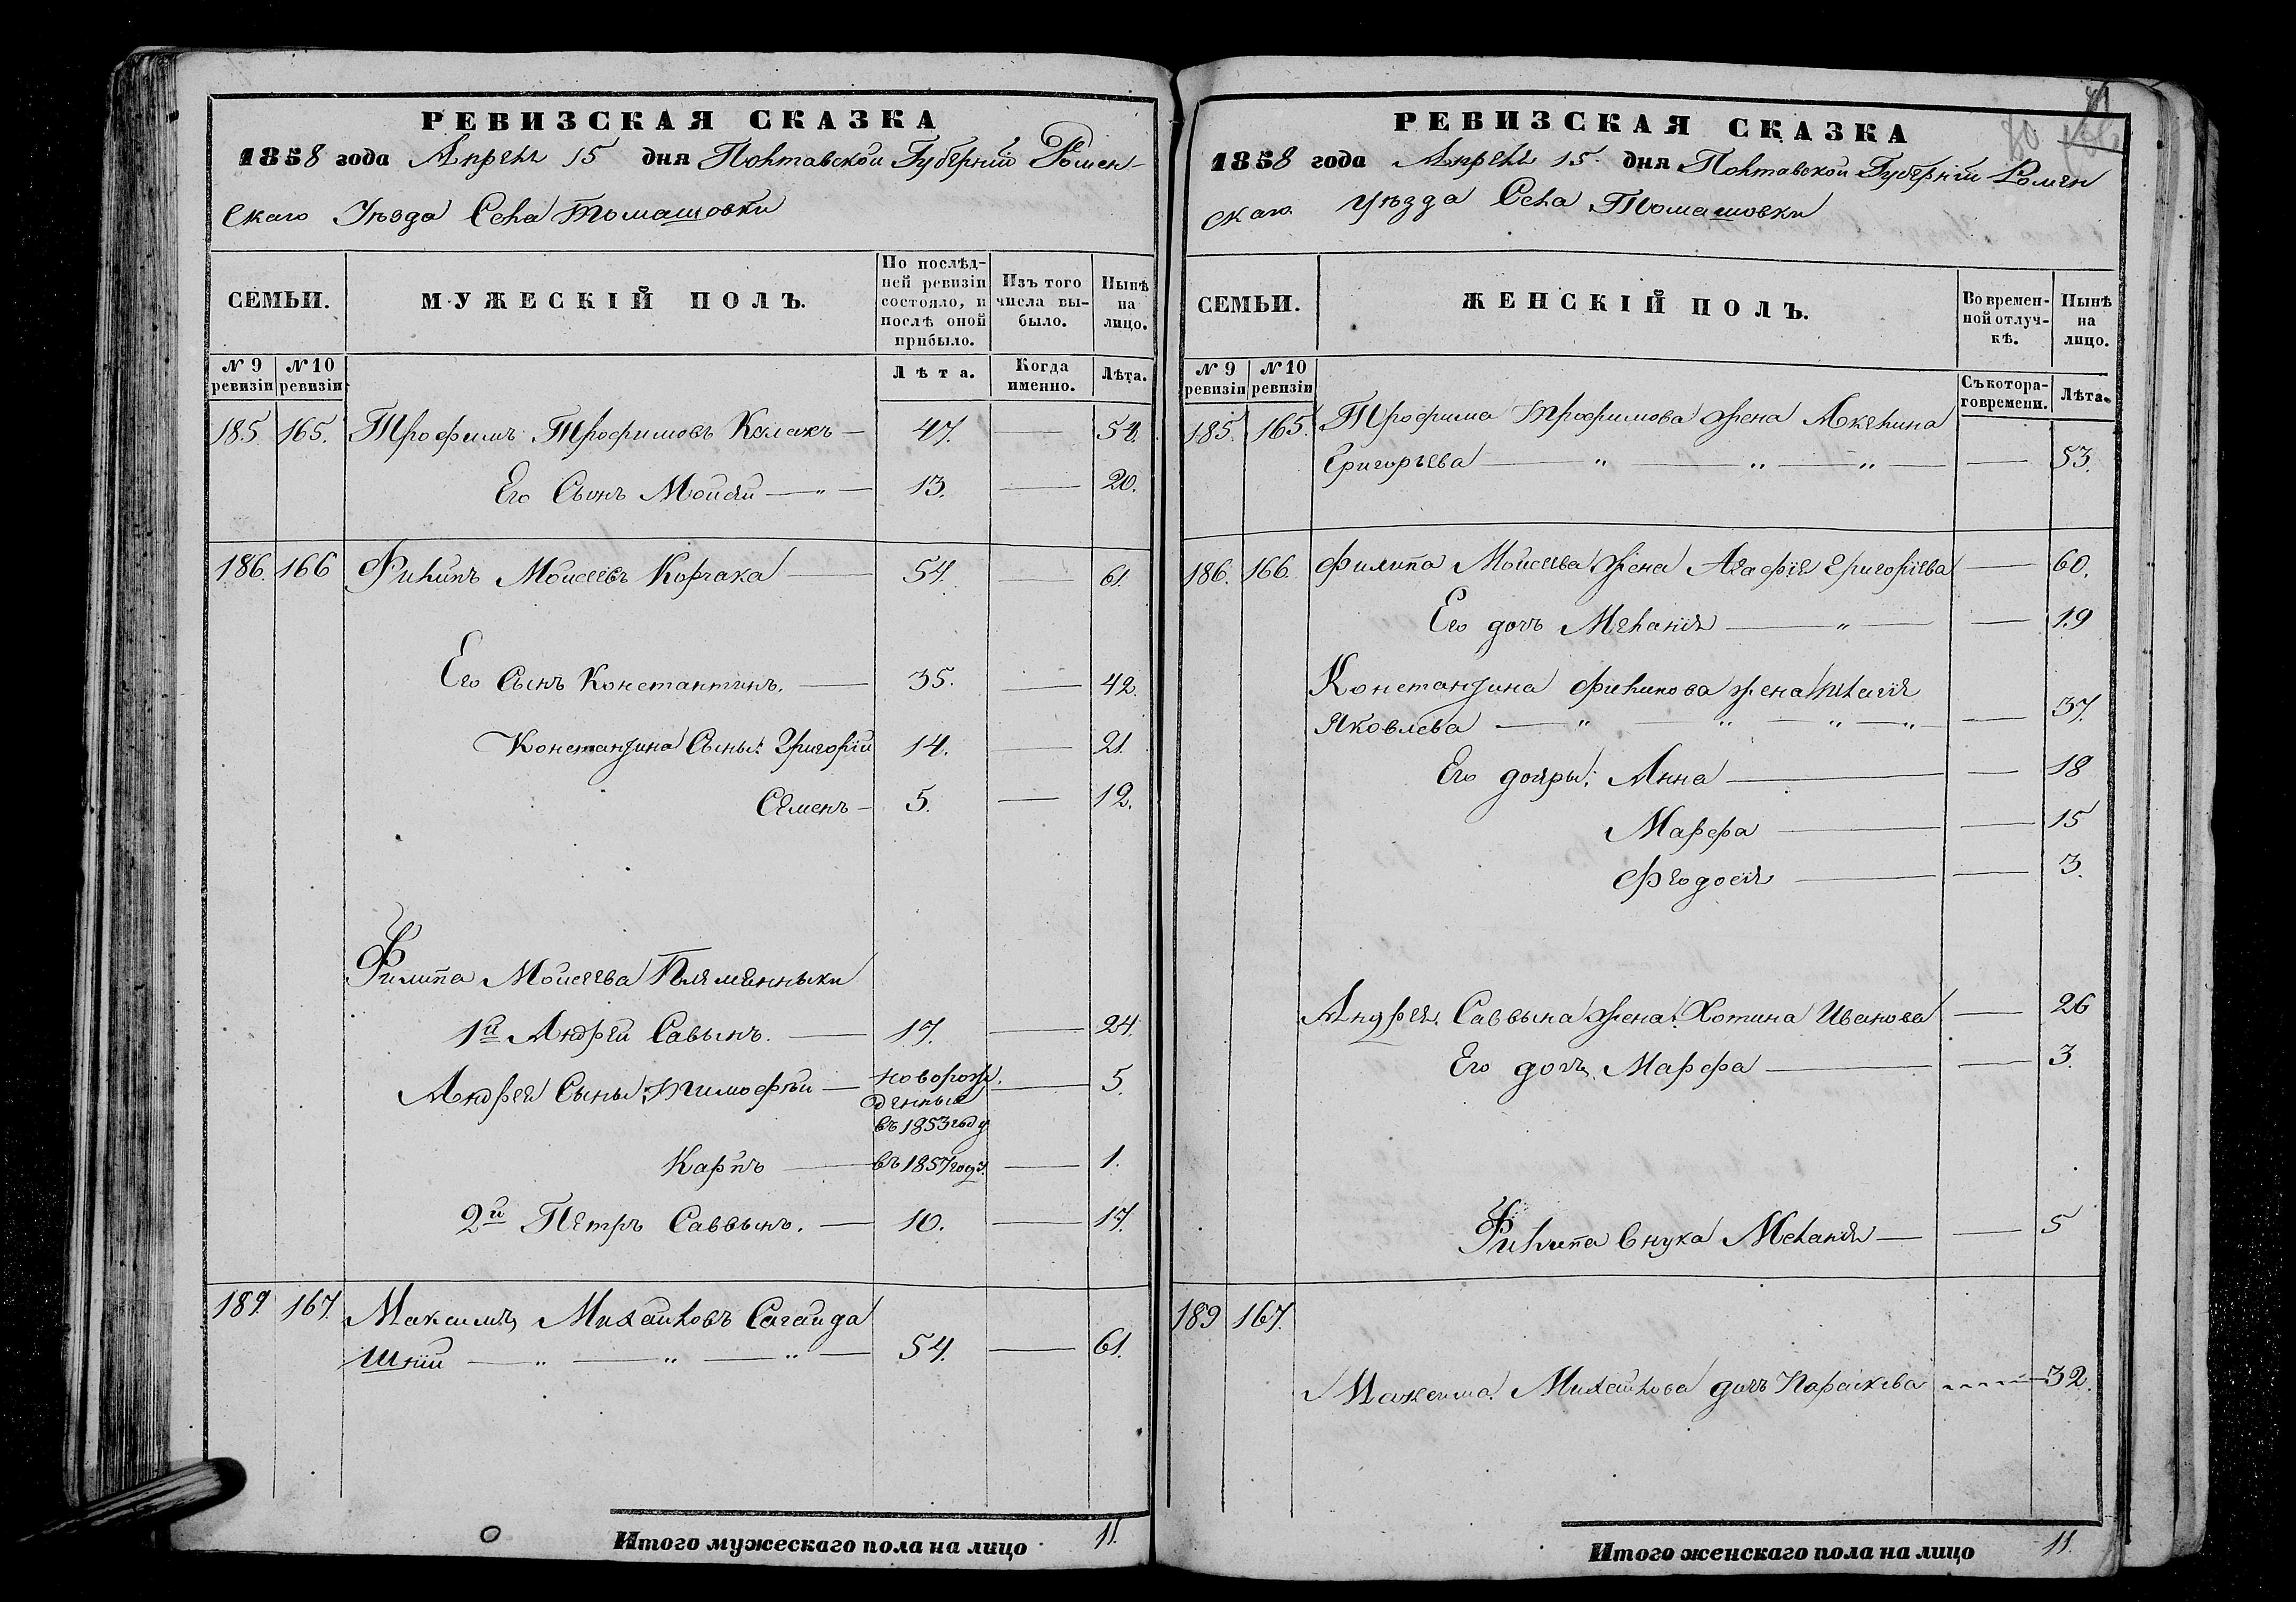 РЕВИЗСКАЯ СКАЗКА
1858 года Апреля 15 дня Полтавской Губерніи Ромен-
скаго Уѣзда Села Томашовки
СЕМЬИ.
МУЖЕСКІЙ ПОЛЪ.
По послѣд-
ней ревизіи
состояло, и
послѣ оной
прибыло.
Изъ того
числа вы-
было.
Нынѣ
на
лицо.
№ 9 ревизіи
№ 10 ревизіи
Лѣта.
Когда именно.
Лѣта.
185. 165. Трофимъ Трофимовъ — 47. — 54.
Его Сынъ Мойсей — " — 13. — 20.
186. 166 Филипъ Мойсеевъ Корчака — 54. — 61.
Его Сынъ Константинъ. — 35. — 42.
Константина Сыны: Григорій 14. — 21.
Семенъ — 5. — 12.
Филипа Мойсеева Племянныки
1й Андрей Савынъ. — 17. — 24.
Андрея Сыны: Тимофѣй — новорож. — 5.
денный
въ 1853 году
Карпъ — въ 1857 году. — 1.
2й Петръ Саввынъ. — 10. — 17.
189. 167. Максимъ Михайловъ Сагайда
шній — " — " — " — 54. — 61.
Итого мужескаго пола на лицо 11.
80
РЕВИЗСКАЯ СКАЗКА
1858 года Апреля 15. дня Полтавской Губерніи Ромен
скаго Уѣзда Села Томашовки
СЕМЬИ.
ЖЕНСКІЙ ПОЛЪ.
Во времен-
ной отлуч-
кѣ.
Нынѣ
на
лицо.
№ 9 ревизіи
№ 10 ревизіи
Съ котора-
го времени.
Лѣта.
185. 165. Трофима Трофимова жена Акелина
Григорьева — " — " — " — — 53.
186. 166. Филипа Мойсеева жена Агафія Григоріева — 60.
Его дочь Меланія — " — — 19
Константина Филипова жена Пелагія
Яковлева — " — " — " — " — 37.
Его дочери: Анна — — 18
Марфа — — 15
Феодосія — — 3.
Андрея Саввына жена: Хотина Иванова — 26
Его дочь Марфа — — 3.
Филипа внука Меланія — — 5
189 167.
Максима Михайлова дочь Параскева — 32.
Итого женскаго пола на лицо 11.